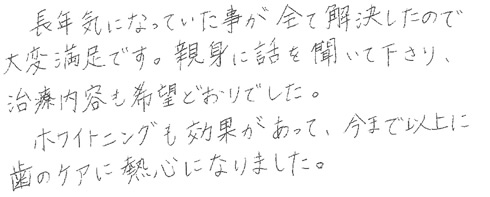 長年気になっていた事が全て解決したので
大変満足です。親身に話を聞いて下さり、
治療内容も希望どおりでした。
ホワイトニングも効果があって、今まで以上に
歯のケアに熱心になりました。